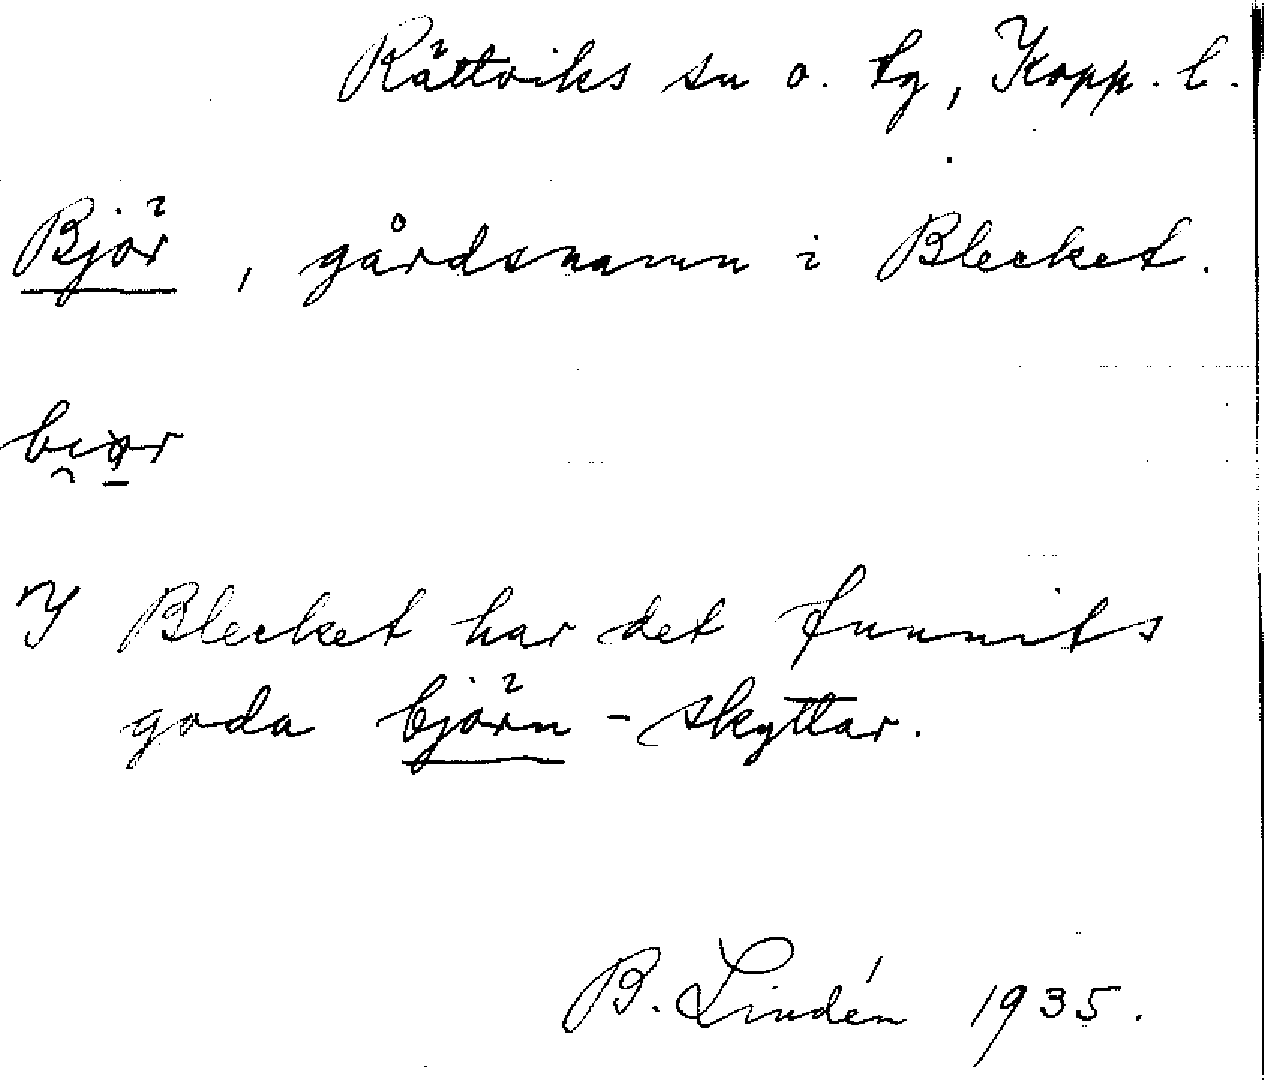 Rättviks sn o. tg, Kopp. l.
Björ, gårdsnamn i Blecket.
I Blecket har det funnits
goda björn-skyttar.
B. Lindén 1935.